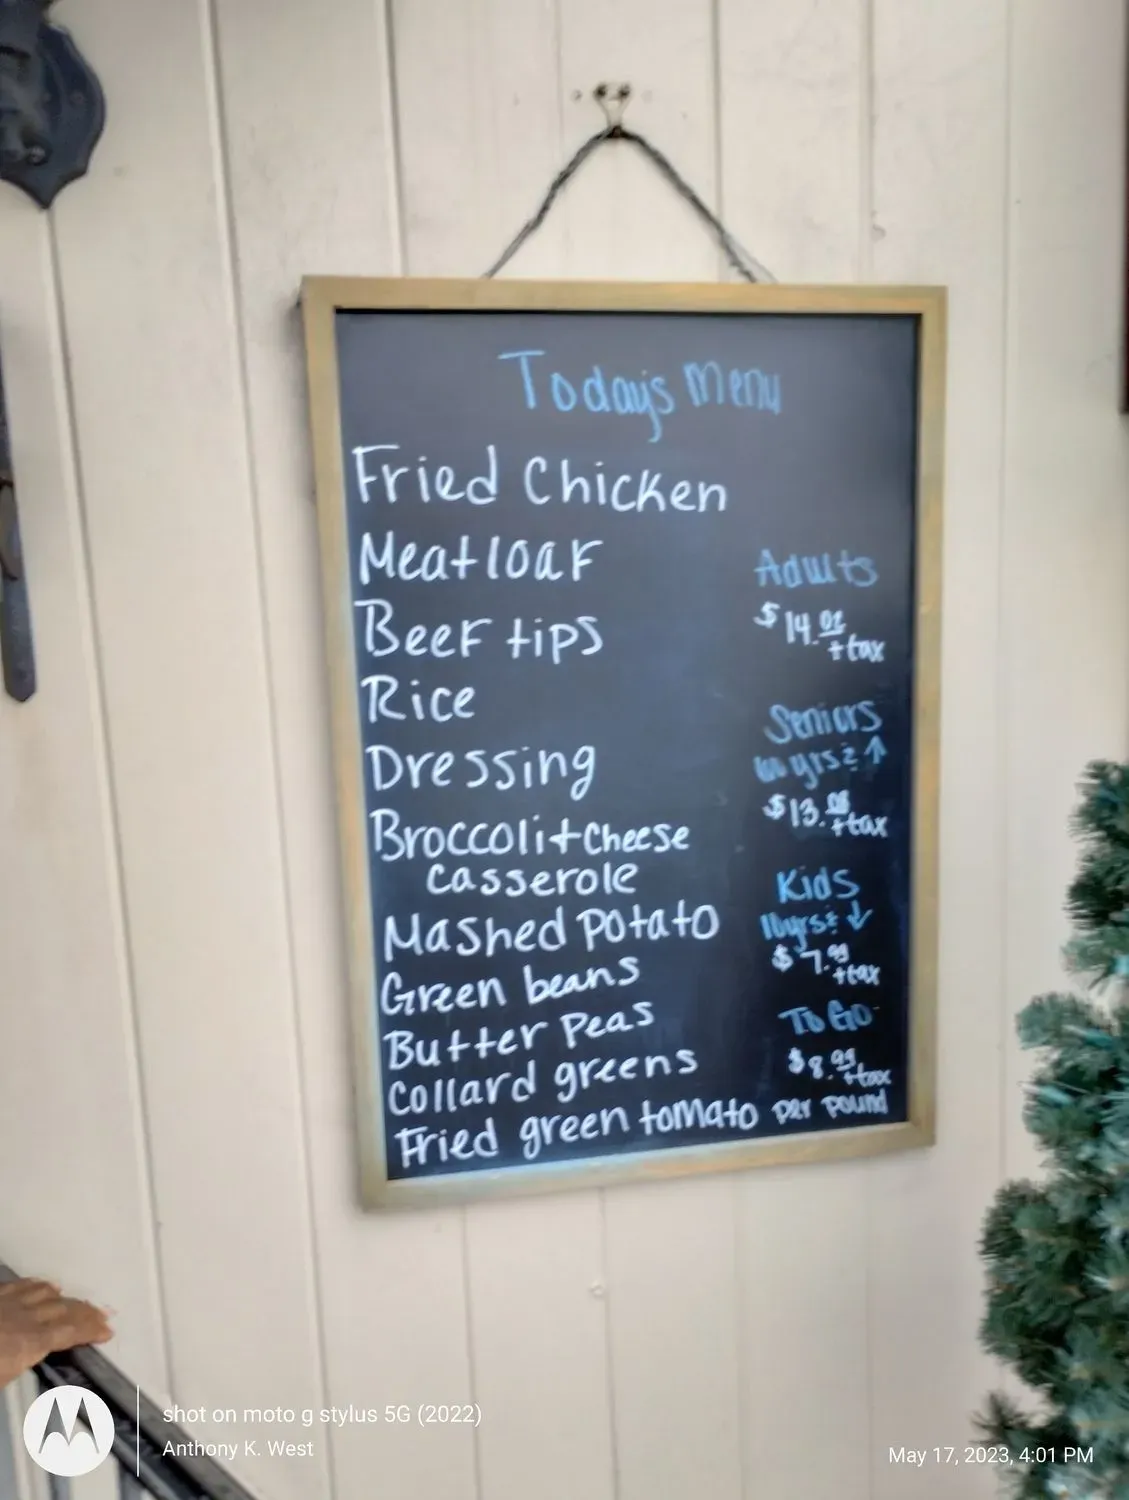 Today's Menu
Fried Chicken
Meatloaf
Beef tips
Rice
Dressing
Broccoli + Cheese
Casserole
Mashed Potato
Green beans
Butter Peas
Collard greens
Fried green tomato
Adults
$14.
+tax
Seniors
60 yrs & ↑
$13.
+tax
Kids
10yrs & ↓
$7.99
+tax
To Go
$8.99
+tax
per pound
shot on moto g stylus 5G (2022)
Anthony K. West
May 17, 2023, 4:01 PM